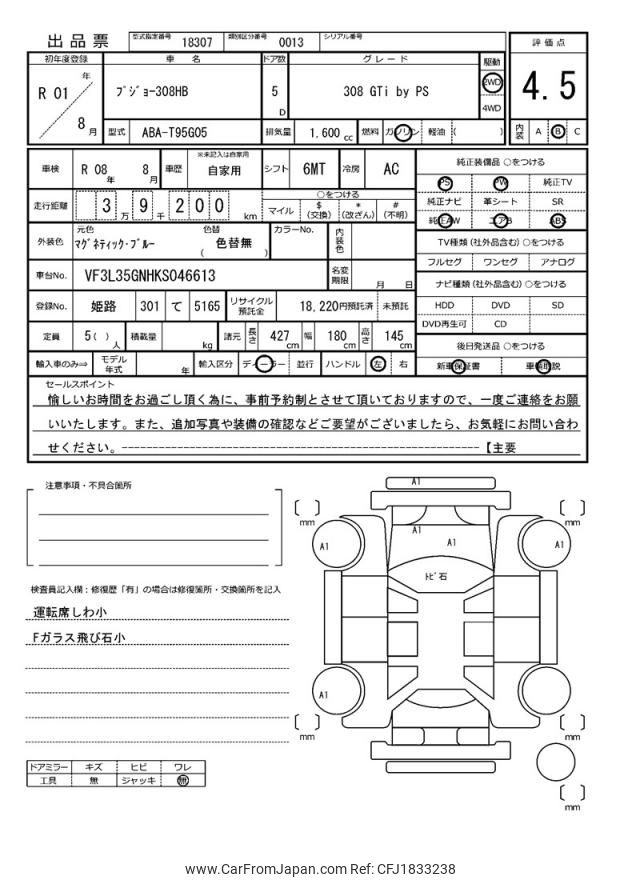 出品票 型式指定番号 18307 類別区分番号 0013 シリアル番号
初年度登録 車名 ドア数 グレード 駆動 評価点
R 01 年 8 月 ﾌﾟｼﾞｮｰ308HB 5 D 308 GTi by PS 2WD 4WD 4.5
型式 ABA-T95G05 排気量 1.600 cc 燃料 ガソリン 軽油 ( ) 内装 A B C
車検 R 08 年 8 月 車歴 ※未記入は自家用 自家用 シフト 6MT 冷房 AC
走行距離 3 万 9 千 2 0 0 km ○をつける
マイル $(交換) *(改ざん) #(不明)
外装色 元色 ﾏｸﾞﾈﾃｨｯｸ･ﾌﾞﾙｰ 色替 ( 色替無 ) カラーNo. 内装色
車台No. VF3L35GNHKS046613 名変期限 月 日
登録No. 姫路 301 て 5165 リサイクル預託金 18,220円預託済 未預託
定員 5( ) 人 積載量 kg 諸元 長さ 427 cm 幅 180 cm 高さ 145 cm
輸入車のみ⇨ モデル年式 年 輸入区分 ディーラー 並行 ハンドル 左 右
純正装備品 ○をつける
PS PW 純正TV
純正ナビ 革シート SR
純正AW エアB ABS
TV種類 (社外品含む) ○をつける
フルセグ ワンセグ アナログ
ナビ種類 (社外品含む) ○をつける
HDD DVD SD
DVD再生可 CD
後日発送品 ○をつける
新車保証書 車輌取説
セールスポイント
愉しいお時間をお過ごし頂く為に、事前予約制とさせて頂いておりますので、一度ご連絡をお願
いいたします。また、追加写真や装備の確認などご要望がございましたら、お気軽にお問い合わ
せください。--------------------------------------------------【主要
注意事項・不具合箇所
検査員記入欄：修復歴「有」の場合は修復箇所・交換箇所を記入
運転席しわ小
Fガラス飛び石小
ドアミラー キズ ヒビ ワレ
工具 無 ジャッキ 無
A1
A1
A1
A1 A1
ﾄﾋﾞ石
A1
mm
mm
mm
mm
mm
www.CarFromJapan.com Ref: CFJ1833238